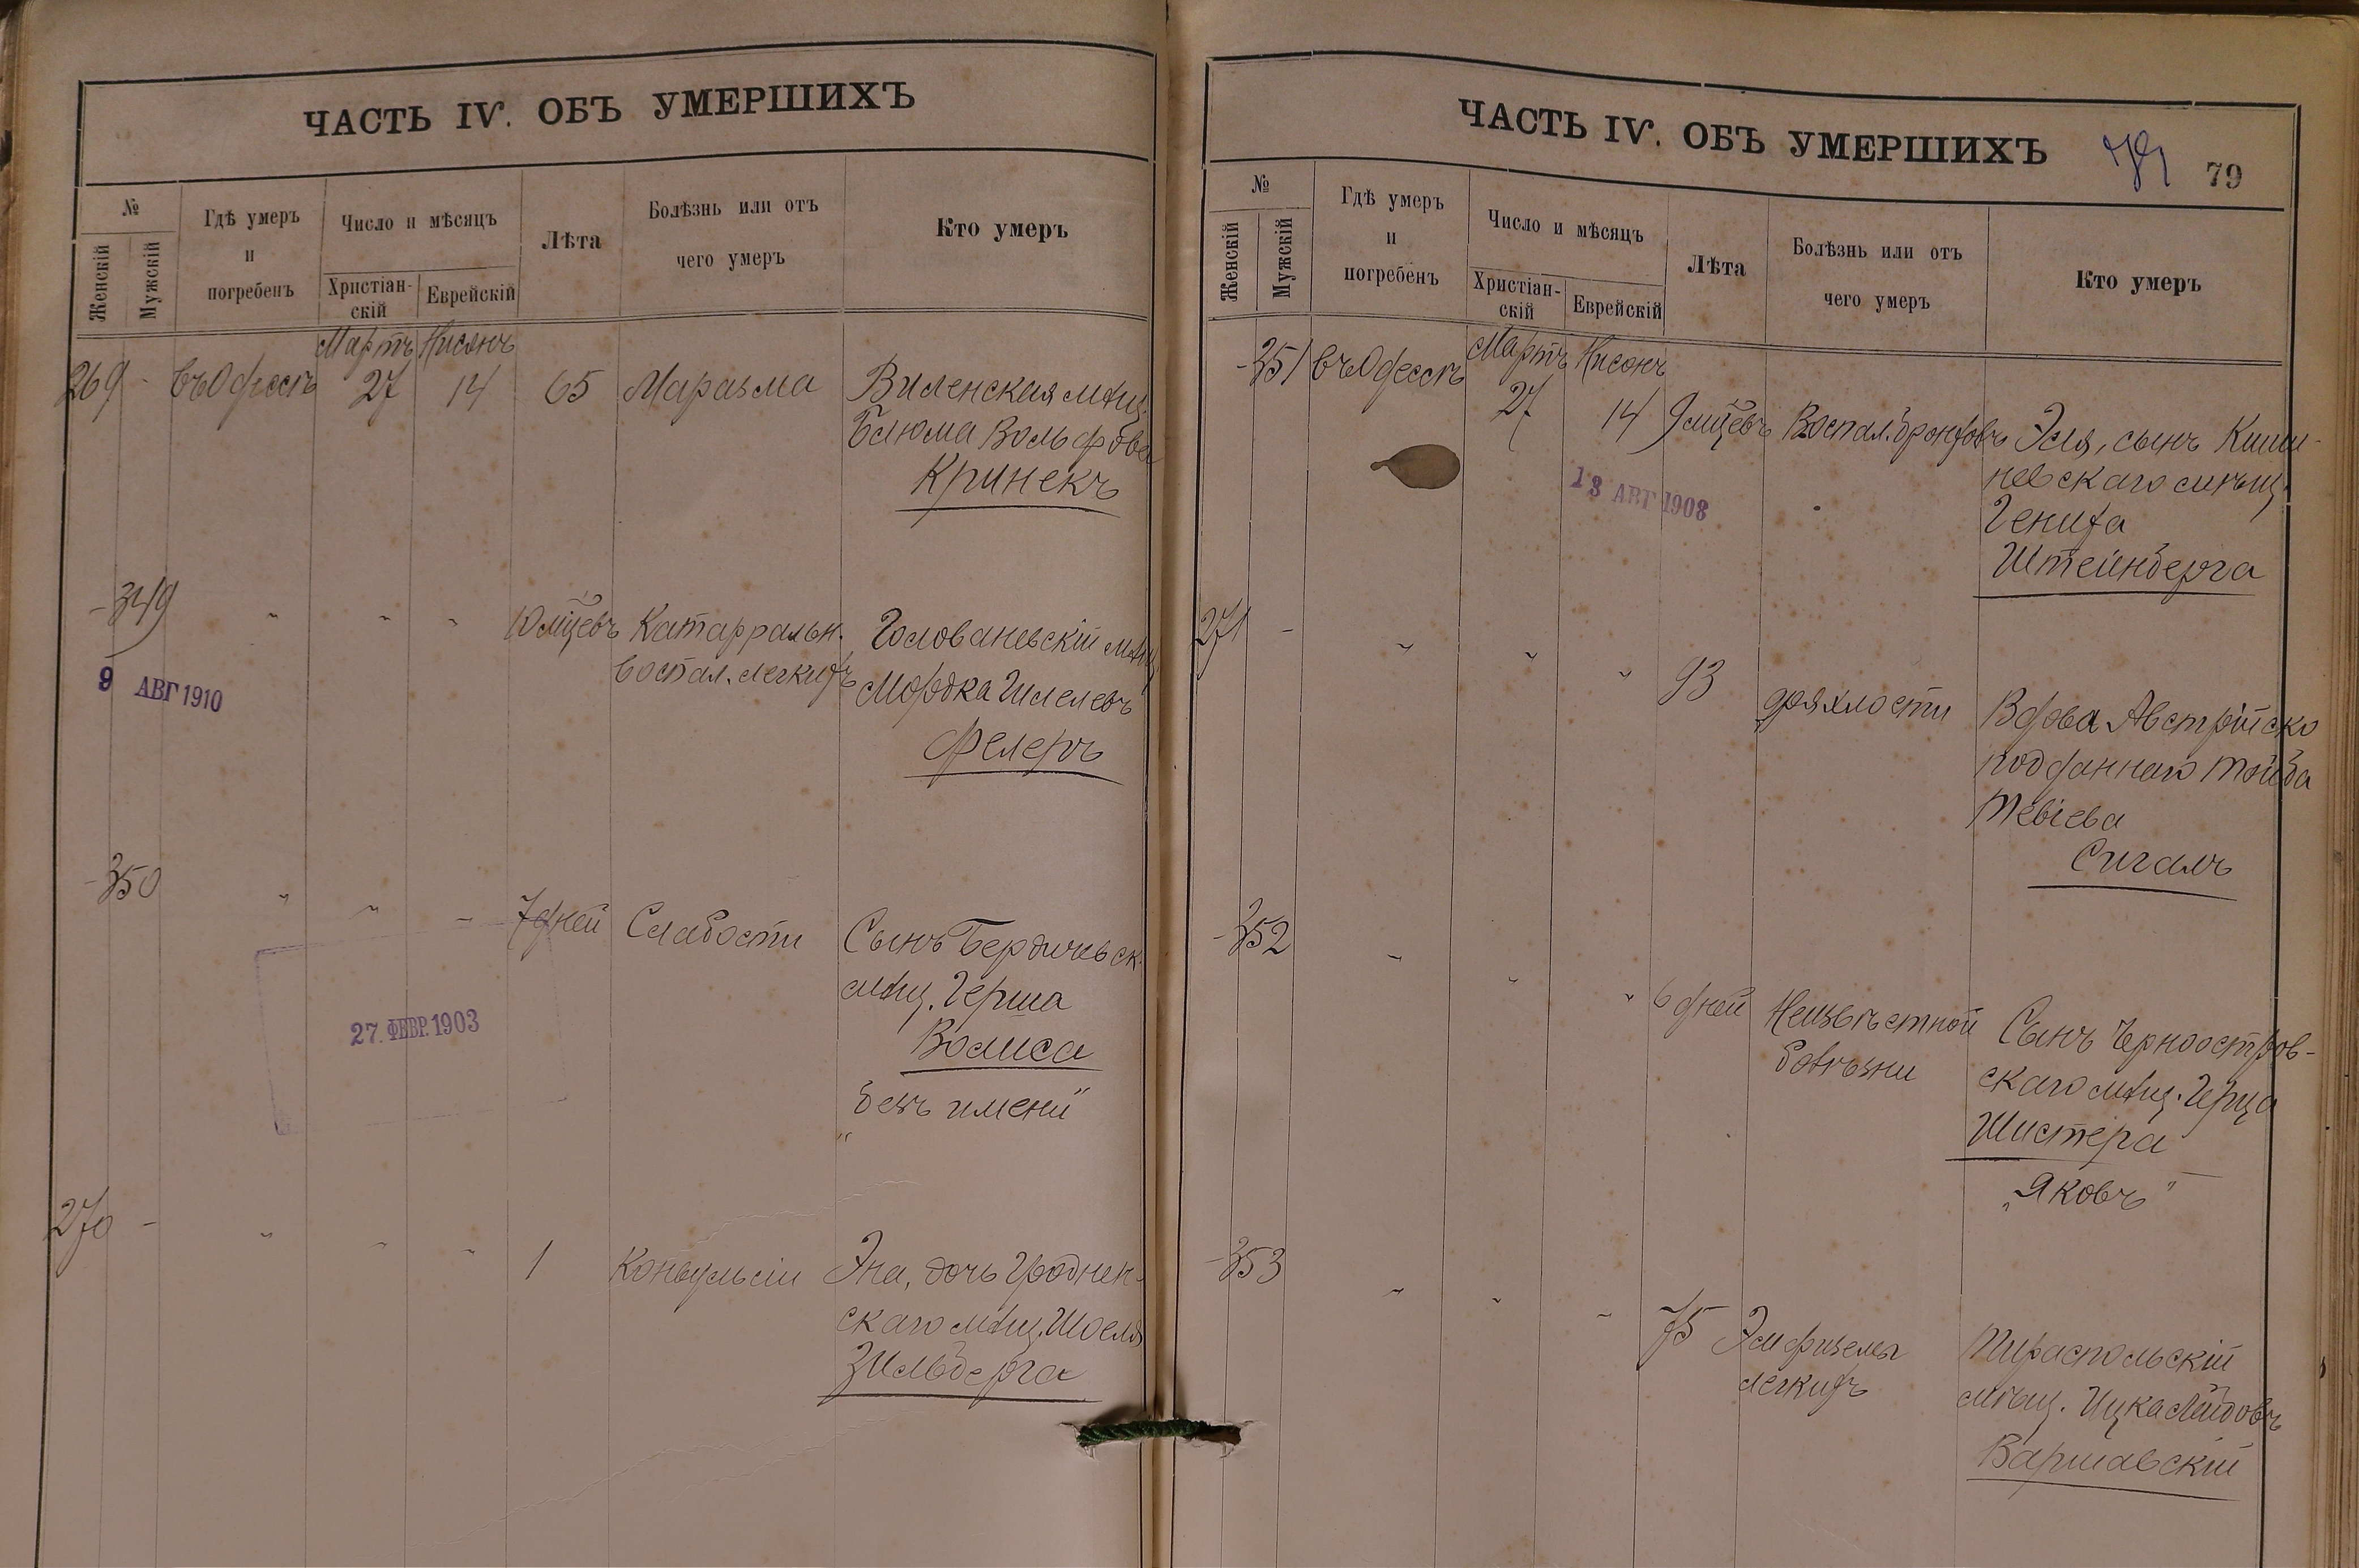 ЧАСТЬ IV. ОБЪ УМЕРШИХЪ
№
Женскій
Мужскій
Гдѣ умеръ
и
погребенъ
Число и мѣсяцъ
Христіан-
скій
Еврейскій
Лѣта
Болѣзнь или отъ
чего умеръ
Кто умеръ
Мартъ Нисонъ
269 - въ Одессѣ 27 14 65 Маразма Виленская мѣщ.
Блюма Вольфова
Кринекъ
- 349 " " " 10 мѣцевъ Катарральн. Голованевскій мѣщ.
воспал. легкихъ Мордка Шлелевъ
9 АВГ 1910
Фелеръ
- 350 " " " 7 дней Слабости Сынъ Бердичевск.
мѣщ. Герша
27. ФЕВР. 1903
Волиса
"безъ имени"
270 - " " " 1 Конвульсіи Эна, дочь Гроднен-
скаго мѣщ. Шоеля
Зильберга
ЧАСТЬ IV. ОБЪ УМЕРШИХЪ 79 79
№
Женскій
Мужскій
Гдѣ умеръ
и
погребенъ
Число и мѣсяцъ
Христіан-
скій
Еврейскій
Лѣта
Болѣзнь или отъ
чего умеръ
Кто умеръ
Мартъ Нисонъ
- 351 въ Одессѣ 27 14 9 мѣцевъ Воспал. бронховъ Эля, сынъ Киши-
невскаго мѣщ.
13 АВГ 1908
Гениха
Штейнберга
271 - " " " 93 дряхлости Вдова Австрійско
подданнаго Тойба
Тевіева
Сигалъ
- 352 " " " 6 дней Неизвѣстной болѣзни Сынъ Черноостров-
скаго мѣщ. Герца
Шистера
"Яковъ"
- 353 " " " 75 Эмфиземы Тираспольскій
легкихъ мѣщ. Ицка Лейбовъ
Варшавскій